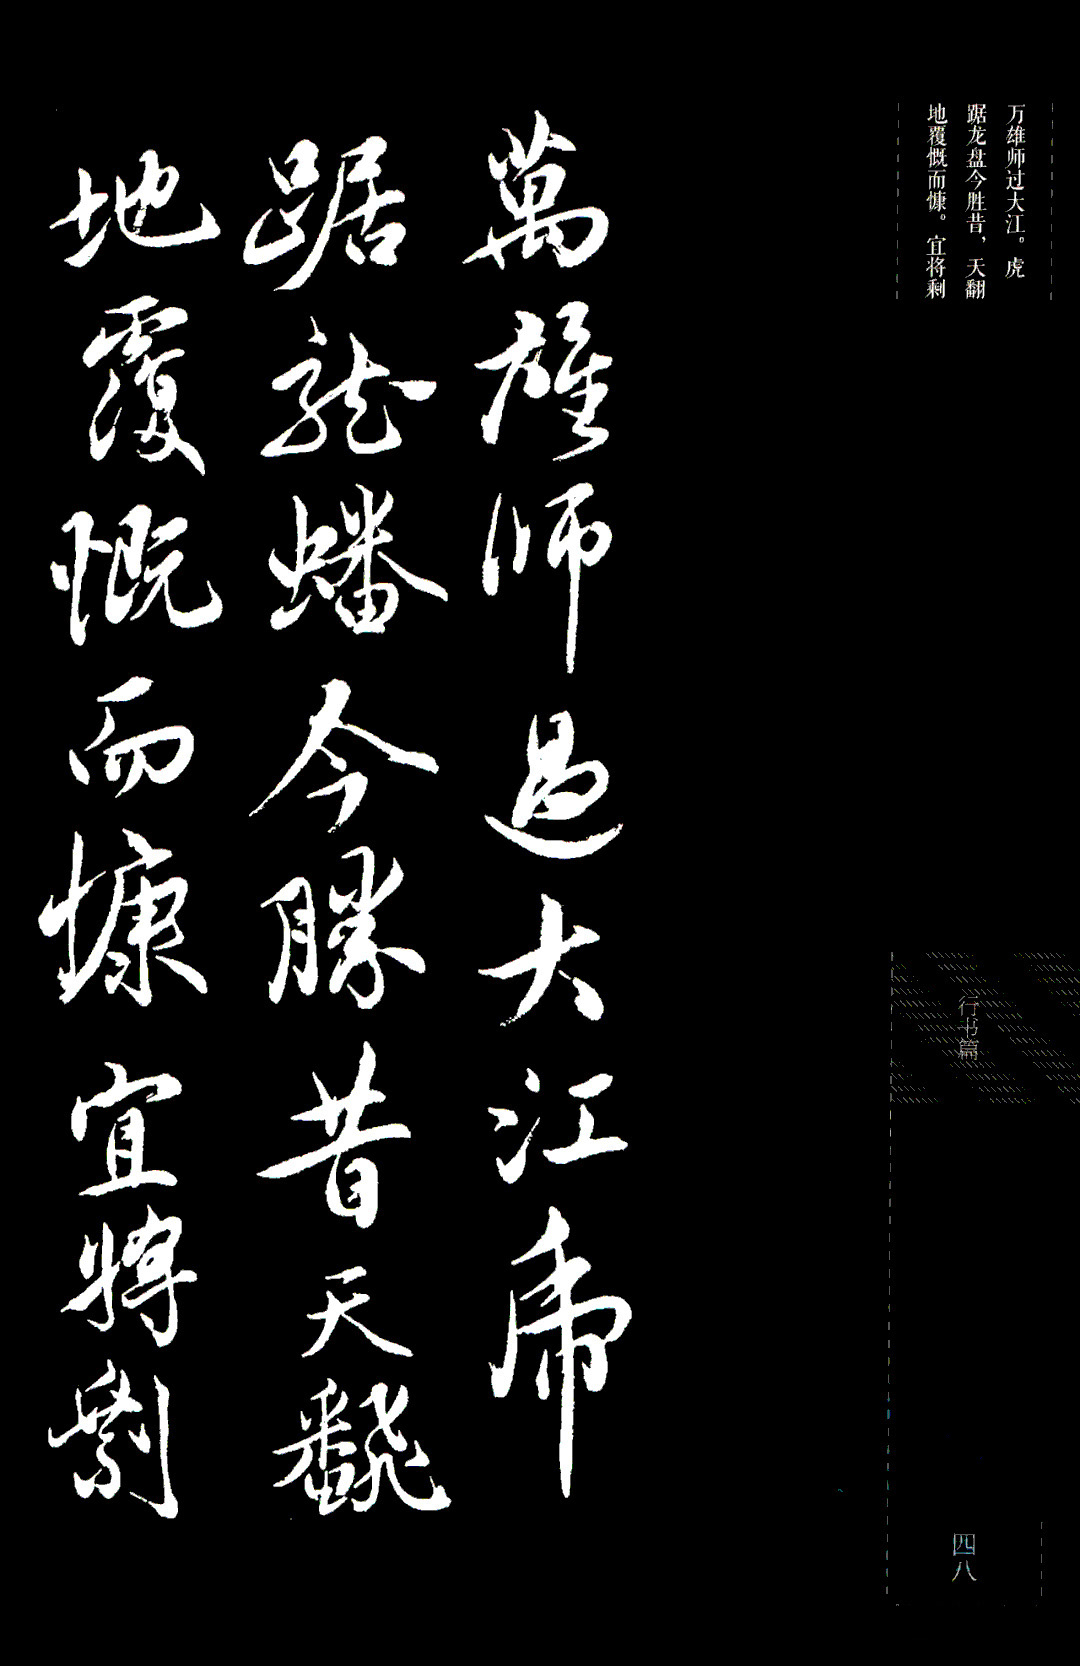 万雄师过大江。虎
踞龙盘今胜昔，天翻
地覆慨而慷。宜将剩
萬雄师過大江虎
踞龍蟠今勝昔天飜
地覆慨而慷宜將剩
行书篇
四八